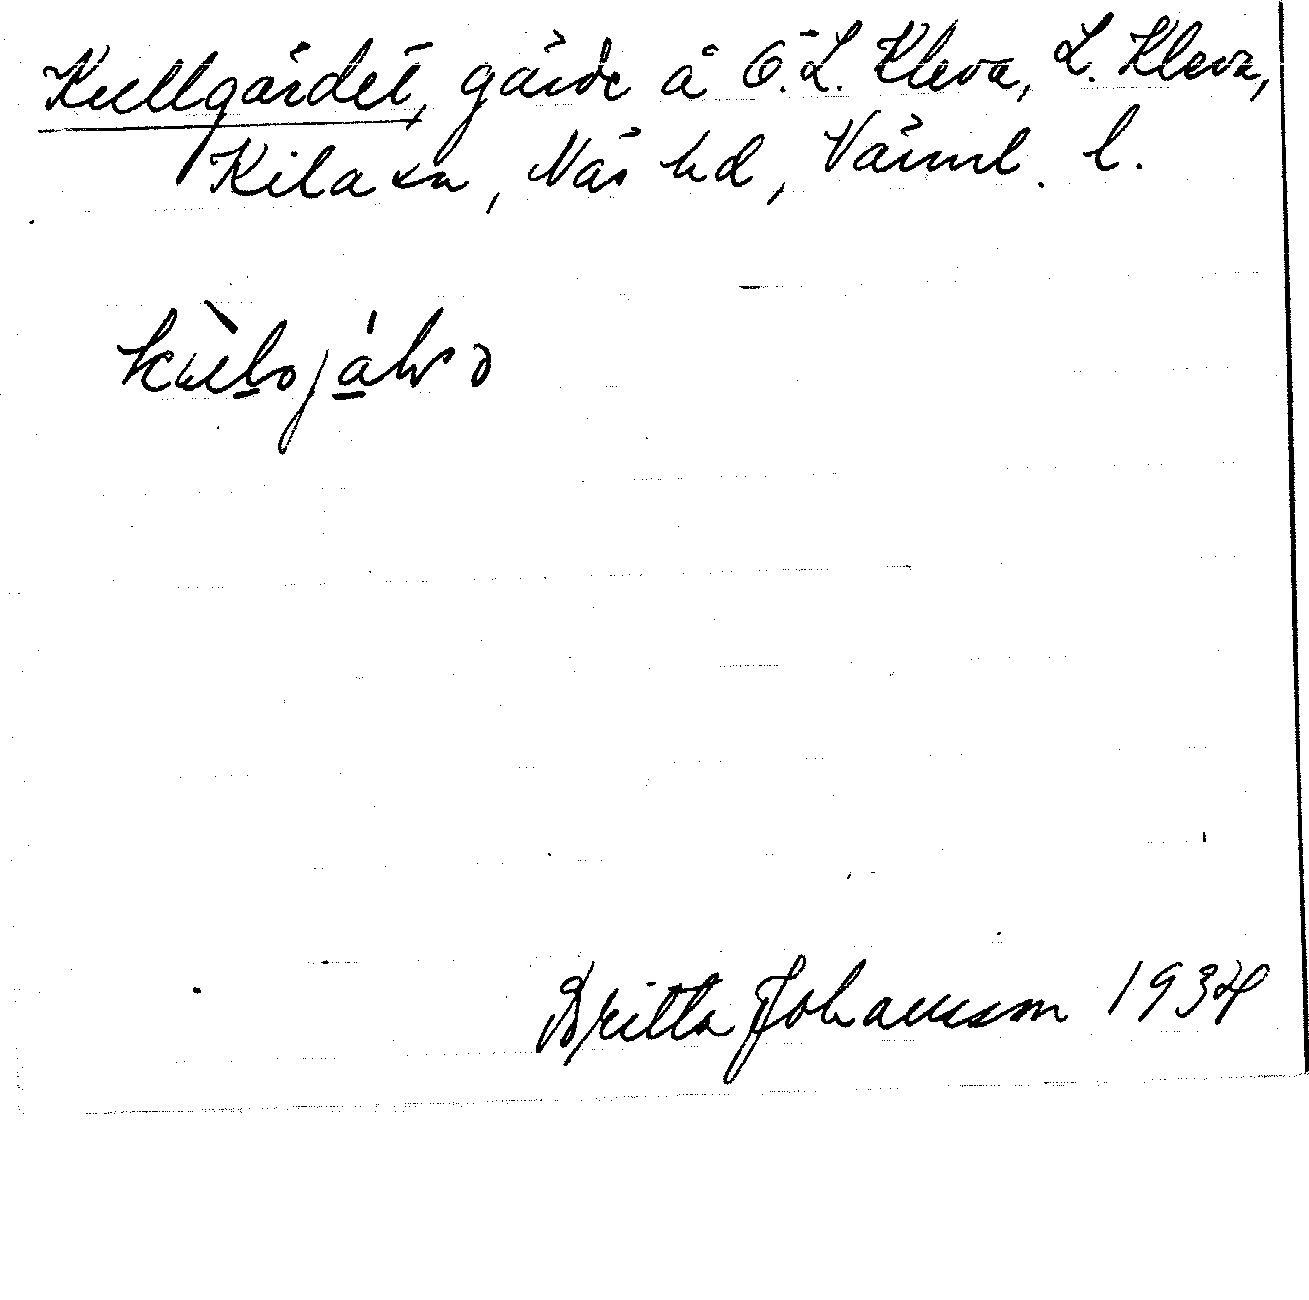 Kullgärdet, gärde å Ö. L. Kleva, L. Kleva,
Kila sn, Näs hd, Värml. l.
Britta Johansson 1934